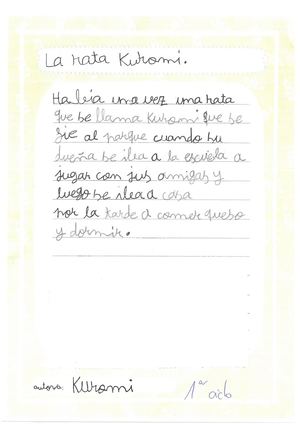 La rata Kuromi.
Había una vez una rata
que se llama Kuromi que se
fue al parque cuando su
dueña se iba a la escuela a
jugar con sus amigas y
luego se iba a casa
por la tarde a comer queso
y dormir.
autora Kuromi
1er ciclo